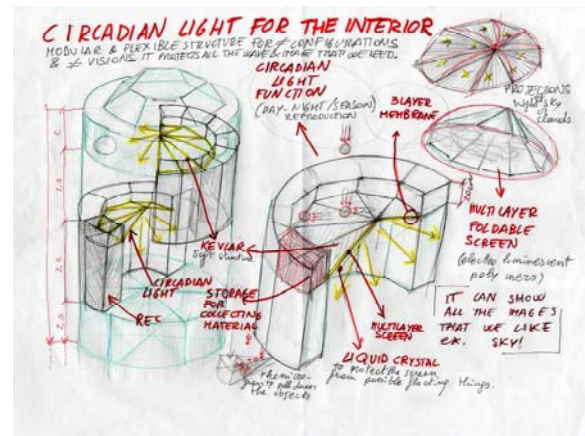 CIRCADIAN LIGHT FOR THE INTERIOR
MODULAR & FLEXIBLE STRUCTURE FOR ≠ CONFIGURATIONS
& ≠ VISIONS IT PROJECTS ALL THE WAVE & IMAGE THAT WE NEED.
CIRCADIAN
LIGHT
FUNCTION
(DAY-NIGHT/SEASON)
REPRODUCTION
3LAYER
MEMBRANE
PROJECTIONS
light sky
clouds
MULTILAYER
FOLDABLE
SCREEN
(electro luminescent
polymers)
IT CAN SHOW
ALL THE IMAGES
THAT WE LIKE
ex. SKY!
KEVLAR
soft structure
CIRCADIAN
LIGHT
STORAGE
FOR
COLLECTING
MATERIAL
MULTILAYER
SCREEN
LIQUID CRYSTAL
to protect the screen
from possible floating things.
the objects